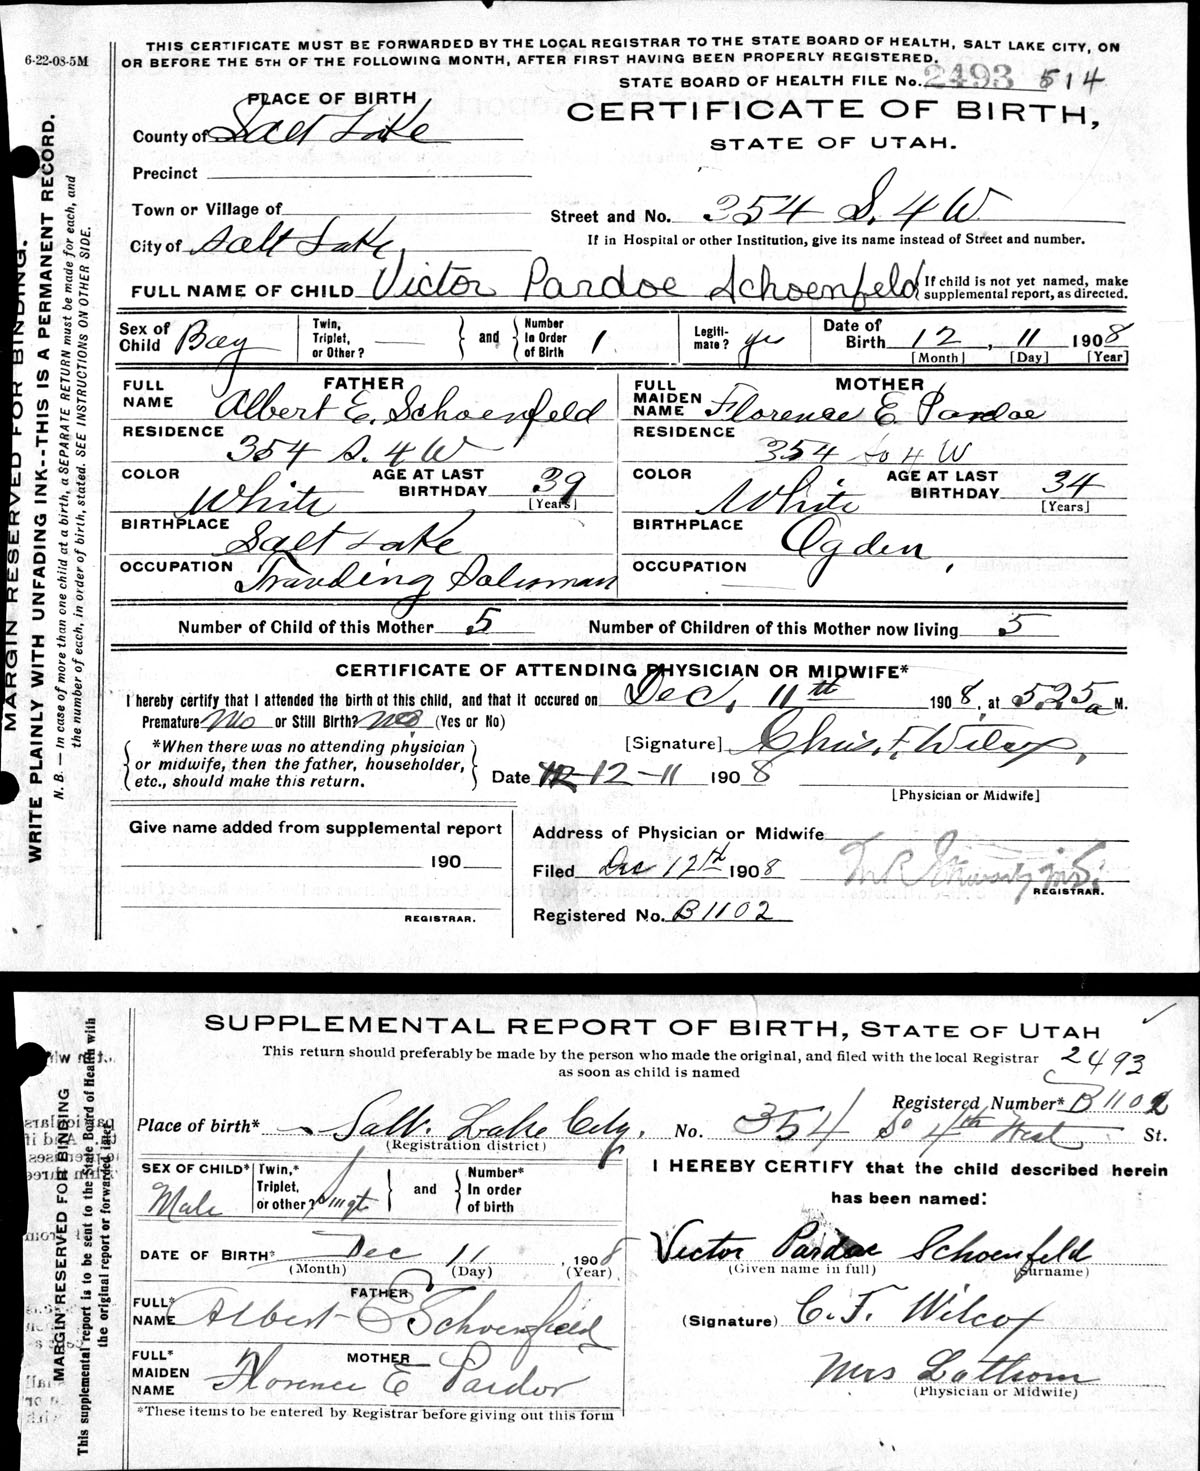 6-22-08-5M
THIS CERTIFICATE MUST BE FORWARDED BY THE LOCAL REGISTRAR TO THE STATE BOARD OF HEALTH, SALT LAKE CITY, ON
OR BEFORE THE 5TH OF THE FOLLOWING MONTH, AFTER FIRST HAVING BEEN PROPERLY REGISTERED.
STATE BOARD OF HEALTH FILE No. 2493 514
PLACE OF BIRTH
CERTIFICATE OF BIRTH,
County of Salt Lake
STATE OF UTAH.
Precinct
Town or Village of
Street and No. 354 S. 4 W
City of Salt Lake,
If in Hospital or other Institution, give its name instead of Street and number.
FULL NAME OF CHILD Victor Pardoe Schoenfeld { If child is not yet named, make
supplemental report, as directed.
Sex of Child Boy Twin, Triplet, or Other? — and Number In Order of Birth 1 Legitimate? yes Date of Birth 12, 11 1908
[Month] [Day] [Year]
FATHER MOTHER
FULL NAME Albert E. Schoenfeld FULL MAIDEN NAME Florence E Pardoe
RESIDENCE 354 S. 4 W RESIDENCE 354 So 4 W
COLOR White AGE AT LAST BIRTHDAY 39 [Years] COLOR White AGE AT LAST BIRTHDAY 34 [Years]
BIRTHPLACE Salt Lake BIRTHPLACE Ogden,
OCCUPATION Traveling Salesman OCCUPATION —
Number of Child of this Mother 5 Number of Children of this Mother now living 5
CERTIFICATE OF ATTENDING PHYSICIAN OR MIDWIFE*
I hereby certify that I attended the birth of this child, and that it occured on Dec. 11th 1908, at 5.25 a M.
Premature No or Still Birth? No (Yes or No)
*When there was no attending physician
or midwife, then the father, householder,
etc., should make this return.
[Signature] Chris. F. Wilcox,
Date 12-11 1908
[Physician or Midwife]
Give name added from supplemental report
190
REGISTRAR.
Address of Physician or Midwife
Filed Dec 12th 1908
REGISTRAR.
Registered No. B1102
MARGIN RESERVED FOR BINDING.
WRITE PLAINLY WITH UNFADING INK--THIS IS A PERMANENT RECORD.
N. B. — In case of more than one child at a birth, a SEPARATE RETURN must be made for each, and
the number of each, in order of birth, stated. SEE INSTRUCTIONS ON OTHER SIDE.
SUPPLEMENTAL REPORT OF BIRTH, STATE OF UTAH
This return should preferably be made by the person who made the original, and filed with the local Registrar
as soon as child is named
2493
Registered Number* B1102
Place of birth* Salt Lake City. No. 354 So 4th West St.
(Registration district)
SEX OF CHILD* Male Twin,* Triplet, or other? Single and Number* In order of birth
DATE OF BIRTH* Dec 11 1908
(Month) (Day) (Year)
FATHER
FULL* NAME Albert E Schoenfeld
MOTHER
FULL* MAIDEN NAME Florence E Pardoe
*These items to be entered by Registrar before giving out this form
I HEREBY CERTIFY that the child described herein
has been named:
Victor Pardoe Schoenfeld
(Given name in full) (Surname)
(Signature) C. F. Wilcox
Mrs Lathrom
(Physician or Midwife)
MARGIN RESERVED FOR BINDING
This supplemental report is to be sent to the State Board of Health with
the original report or forwarded later